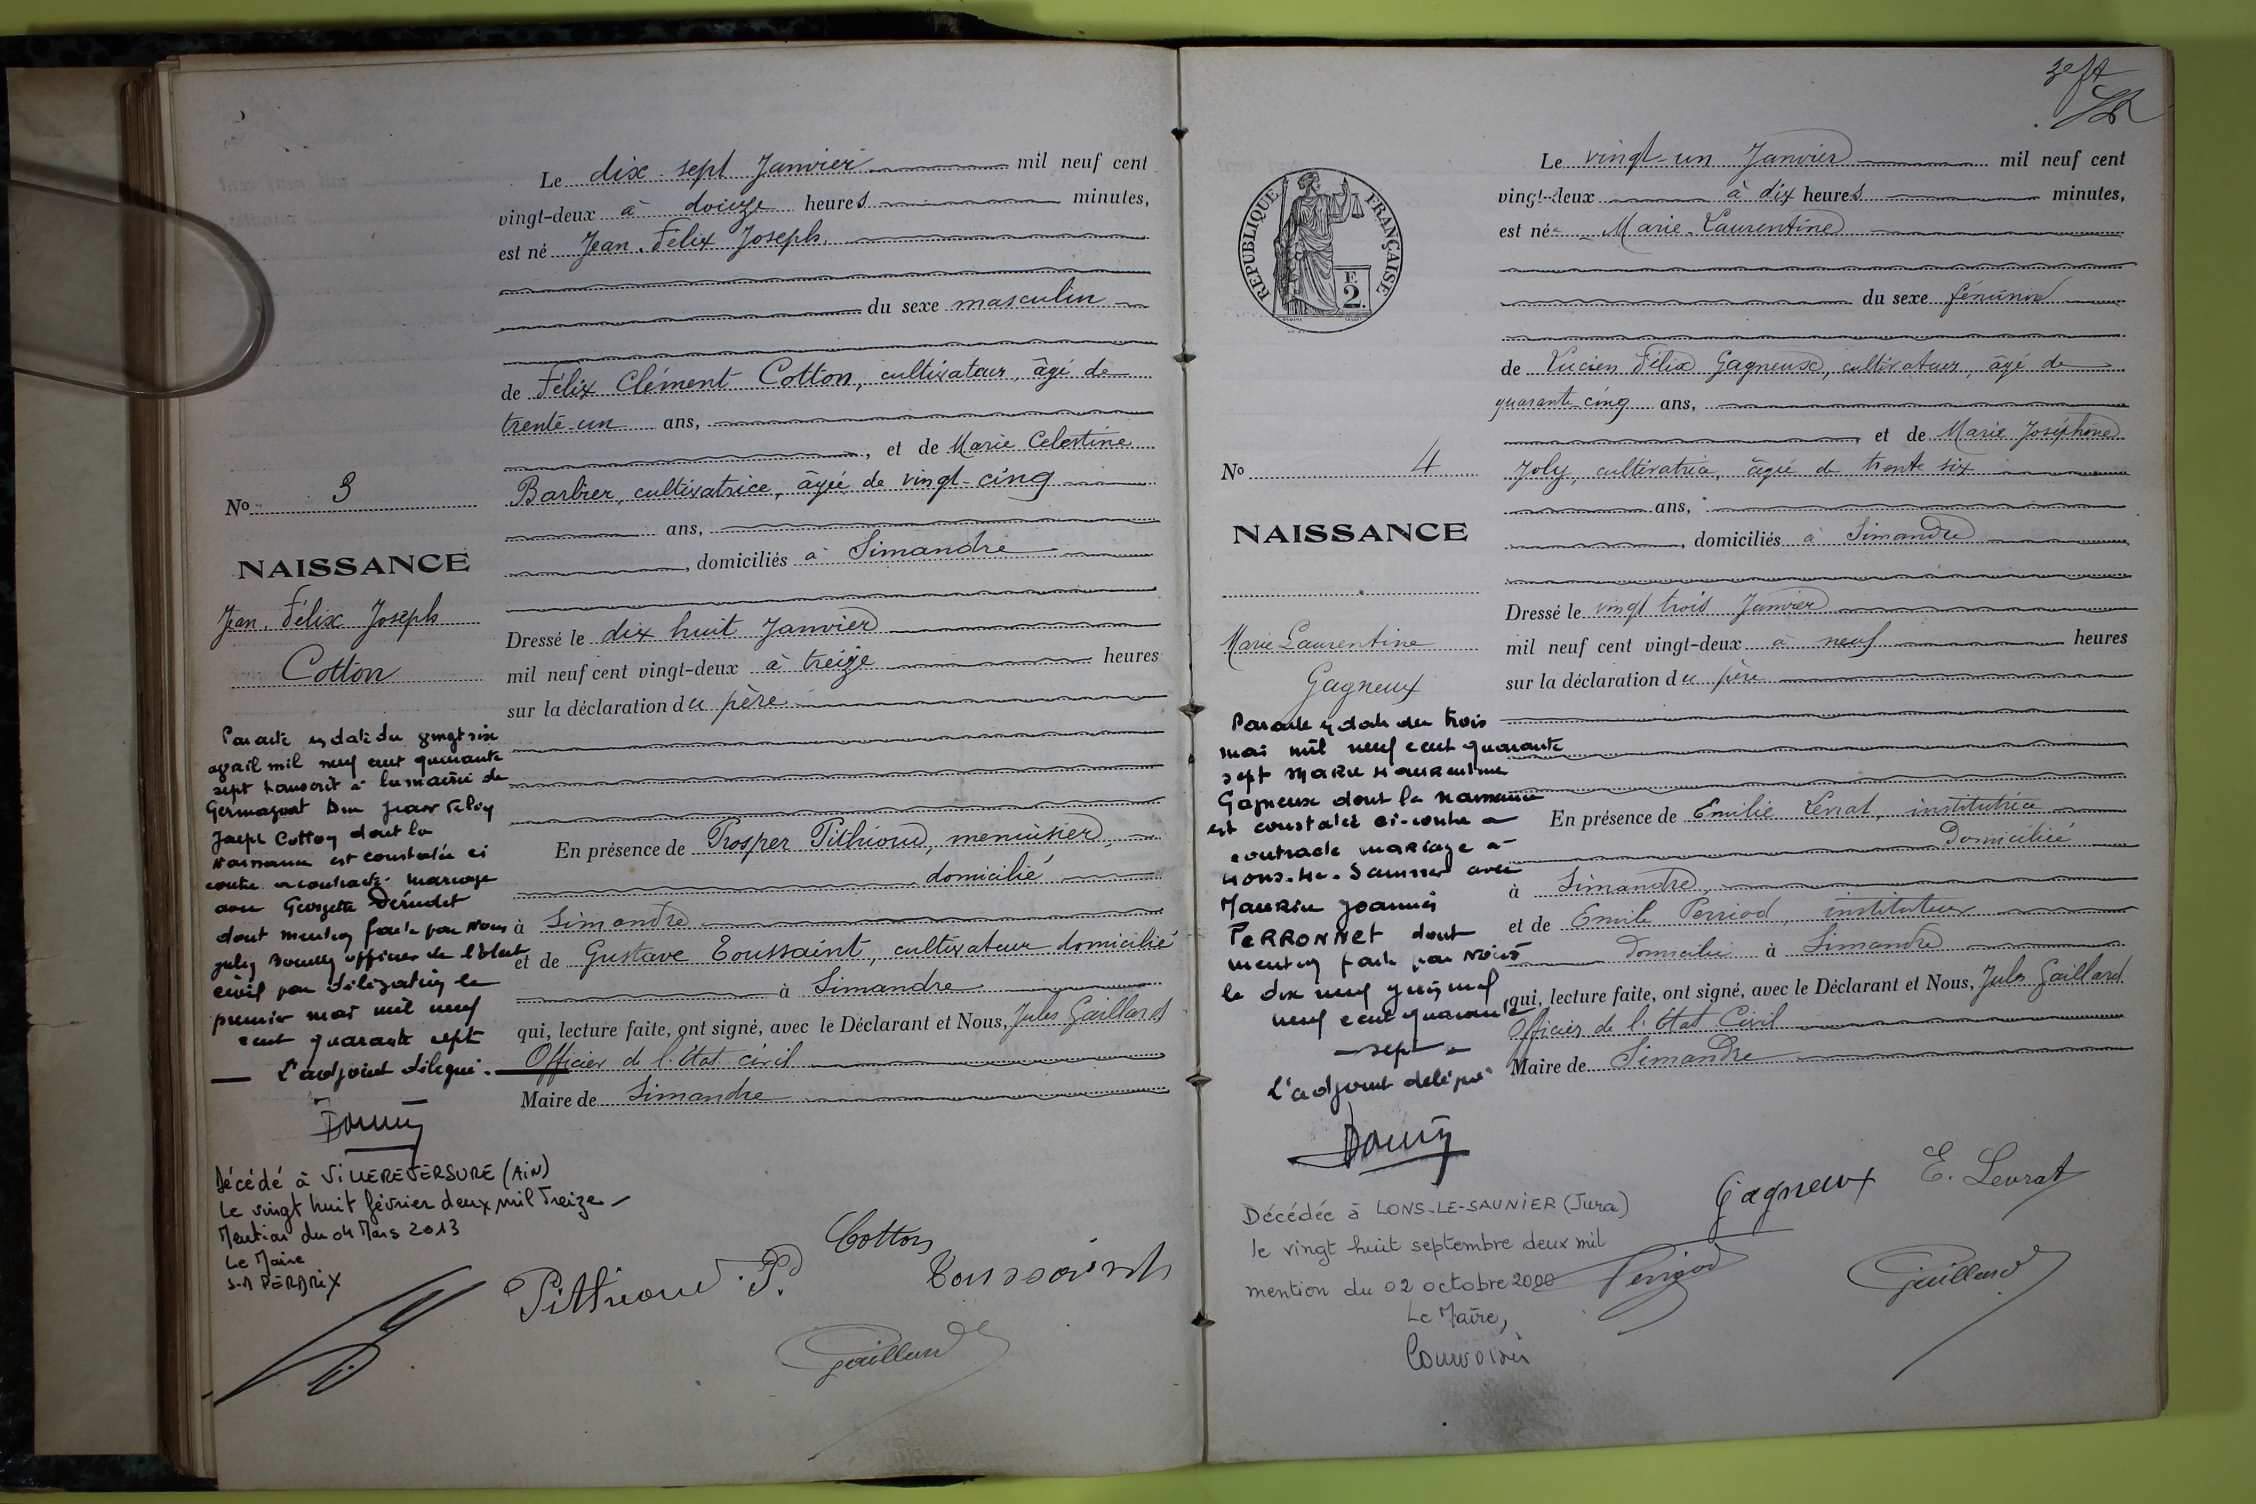 Le dix-sept Janvier mil neuf cent
vingt-deux à douze heures minutes,
est né Jean Félix Joseph
du sexe masculin
de Félix Clément Cotton, cultivateur, âgé de
trente-un ans,
, et de Marie Celestine
Barbier, cultivatrice, âgée de vingt-cinq
ans,
, domiciliés à Simandre
Dressé le dix huit Janvier
mil neuf cent vingt-deux à treize heures
sur la déclaration du père
En présence de Prosper Pithioud, menuisier,
domicilié
à Simandre
et de Gustave Toussaint, cultivateur domicilié
à Simandre
qui, lecture faite, ont signé, avec le Déclarant et Nous, Jules Gaillard
Officier de l'état civil
Maire de Simandre
No 3
NAISSANCE
Jean Félix Joseph
Cotton
Par acte en date du vingt six
avril mil neuf cent quarante
sept transcrit à la mairie de
Germagnat Jean Félix
Joseph Cotton dont la
naissance est constatée ci
contre a contracté mariage
avec Georgette
dont mention faite par Nous
officier de l'état
civil par délégation le
premier mai mil neuf
cent quarante sept
L'adjoint délégué.
Décédé à VILLEREVERSURE (AIN)
Le vingt huit février deux mil treize
Mention du 04 Mars 2013
Le Maire
Cotton
Pithioud P.
Toussaint
Gaillard
REPUBLIQUE FRANÇAISE
F
2.
Le vingt-un Janvier mil neuf cent
vingt-deux à dix heures minutes,
est née Marie-Laurentine
du sexe féminin
de Lucien Félix Gagneux, cultivateur, âgé de
quarante cinq ans,
, et de Marie Joséphine
Joly, cultivatrice, âgée de trente six
ans,
, domiciliés à Simandre
Dressé le vingt trois Janvier
mil neuf cent vingt-deux à neuf heures
sur la déclaration du père
En présence de Emilie Levrat, institutrice
Domiciliée
à Simandre,
et de Emile Perriod, instituteur
domicilié à Simandre
qui, lecture faite, ont signé, avec le Déclarant et Nous, Jules Gaillard
Officier de l'état Civil
Maire de Simandre
No 4
NAISSANCE
Marie Laurentine
Gagneux
Par acte en date du trois
mai mil neuf cent quarante
sept Marie Laurentine
Gagneux dont la naissance
est constatée ci-contre a
contracté mariage à
Lons-le-Saunier avec
Maurice Joannès
PERRONNET dont
mention faite par Nous
le dix neuf juin mil
neuf cent quarante
sept
L'adjoint délégué
Décédée à LONS-LE-SAUNIER (Jura)
le vingt huit septembre deux mil
mention du 02 octobre 2000
Le Maire,
Gagneux
E. Levrat
Perriod
Gaillard